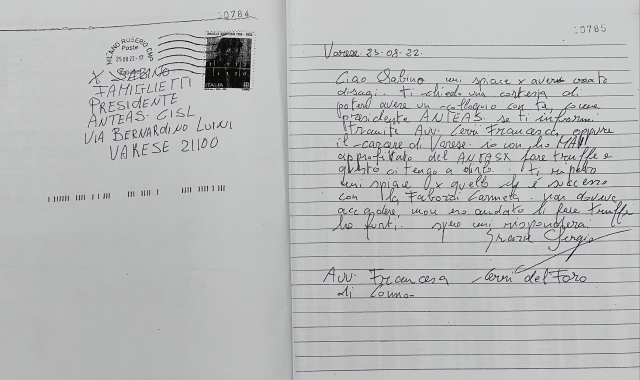 00784
MILANO ROSERIO CMP
Poste
25.08.22-17
ITALIA
X SABINO
FAMIGLIETTI
PRESIDENTE
ANTEAS. CISL
VIA BERNARDINO LUINI
VARESE 21100
00785
Varese. 23-08-22.
Ciao Sabino mi spiace x avere creato
disagi. Ti chiedo una cortesia di
potere avere un colloquio con te, come
presidente ANTEAS. se ti informi
tramite Avv. Cerri Francesca, oppure
il carcere di Varese. io non ho MAI
approfittato del ANTEAS X fare truffe e
questo ci tengo a dirlo. Ti ripeto
mi spiace x quello che è successo
con la Carmela. non doveva
accadere, non ero andato di fare truffe
ho furti. spero mi risponderai.
Grazie Sergio
Avv. Francesca Cerri del Foro
di Como.